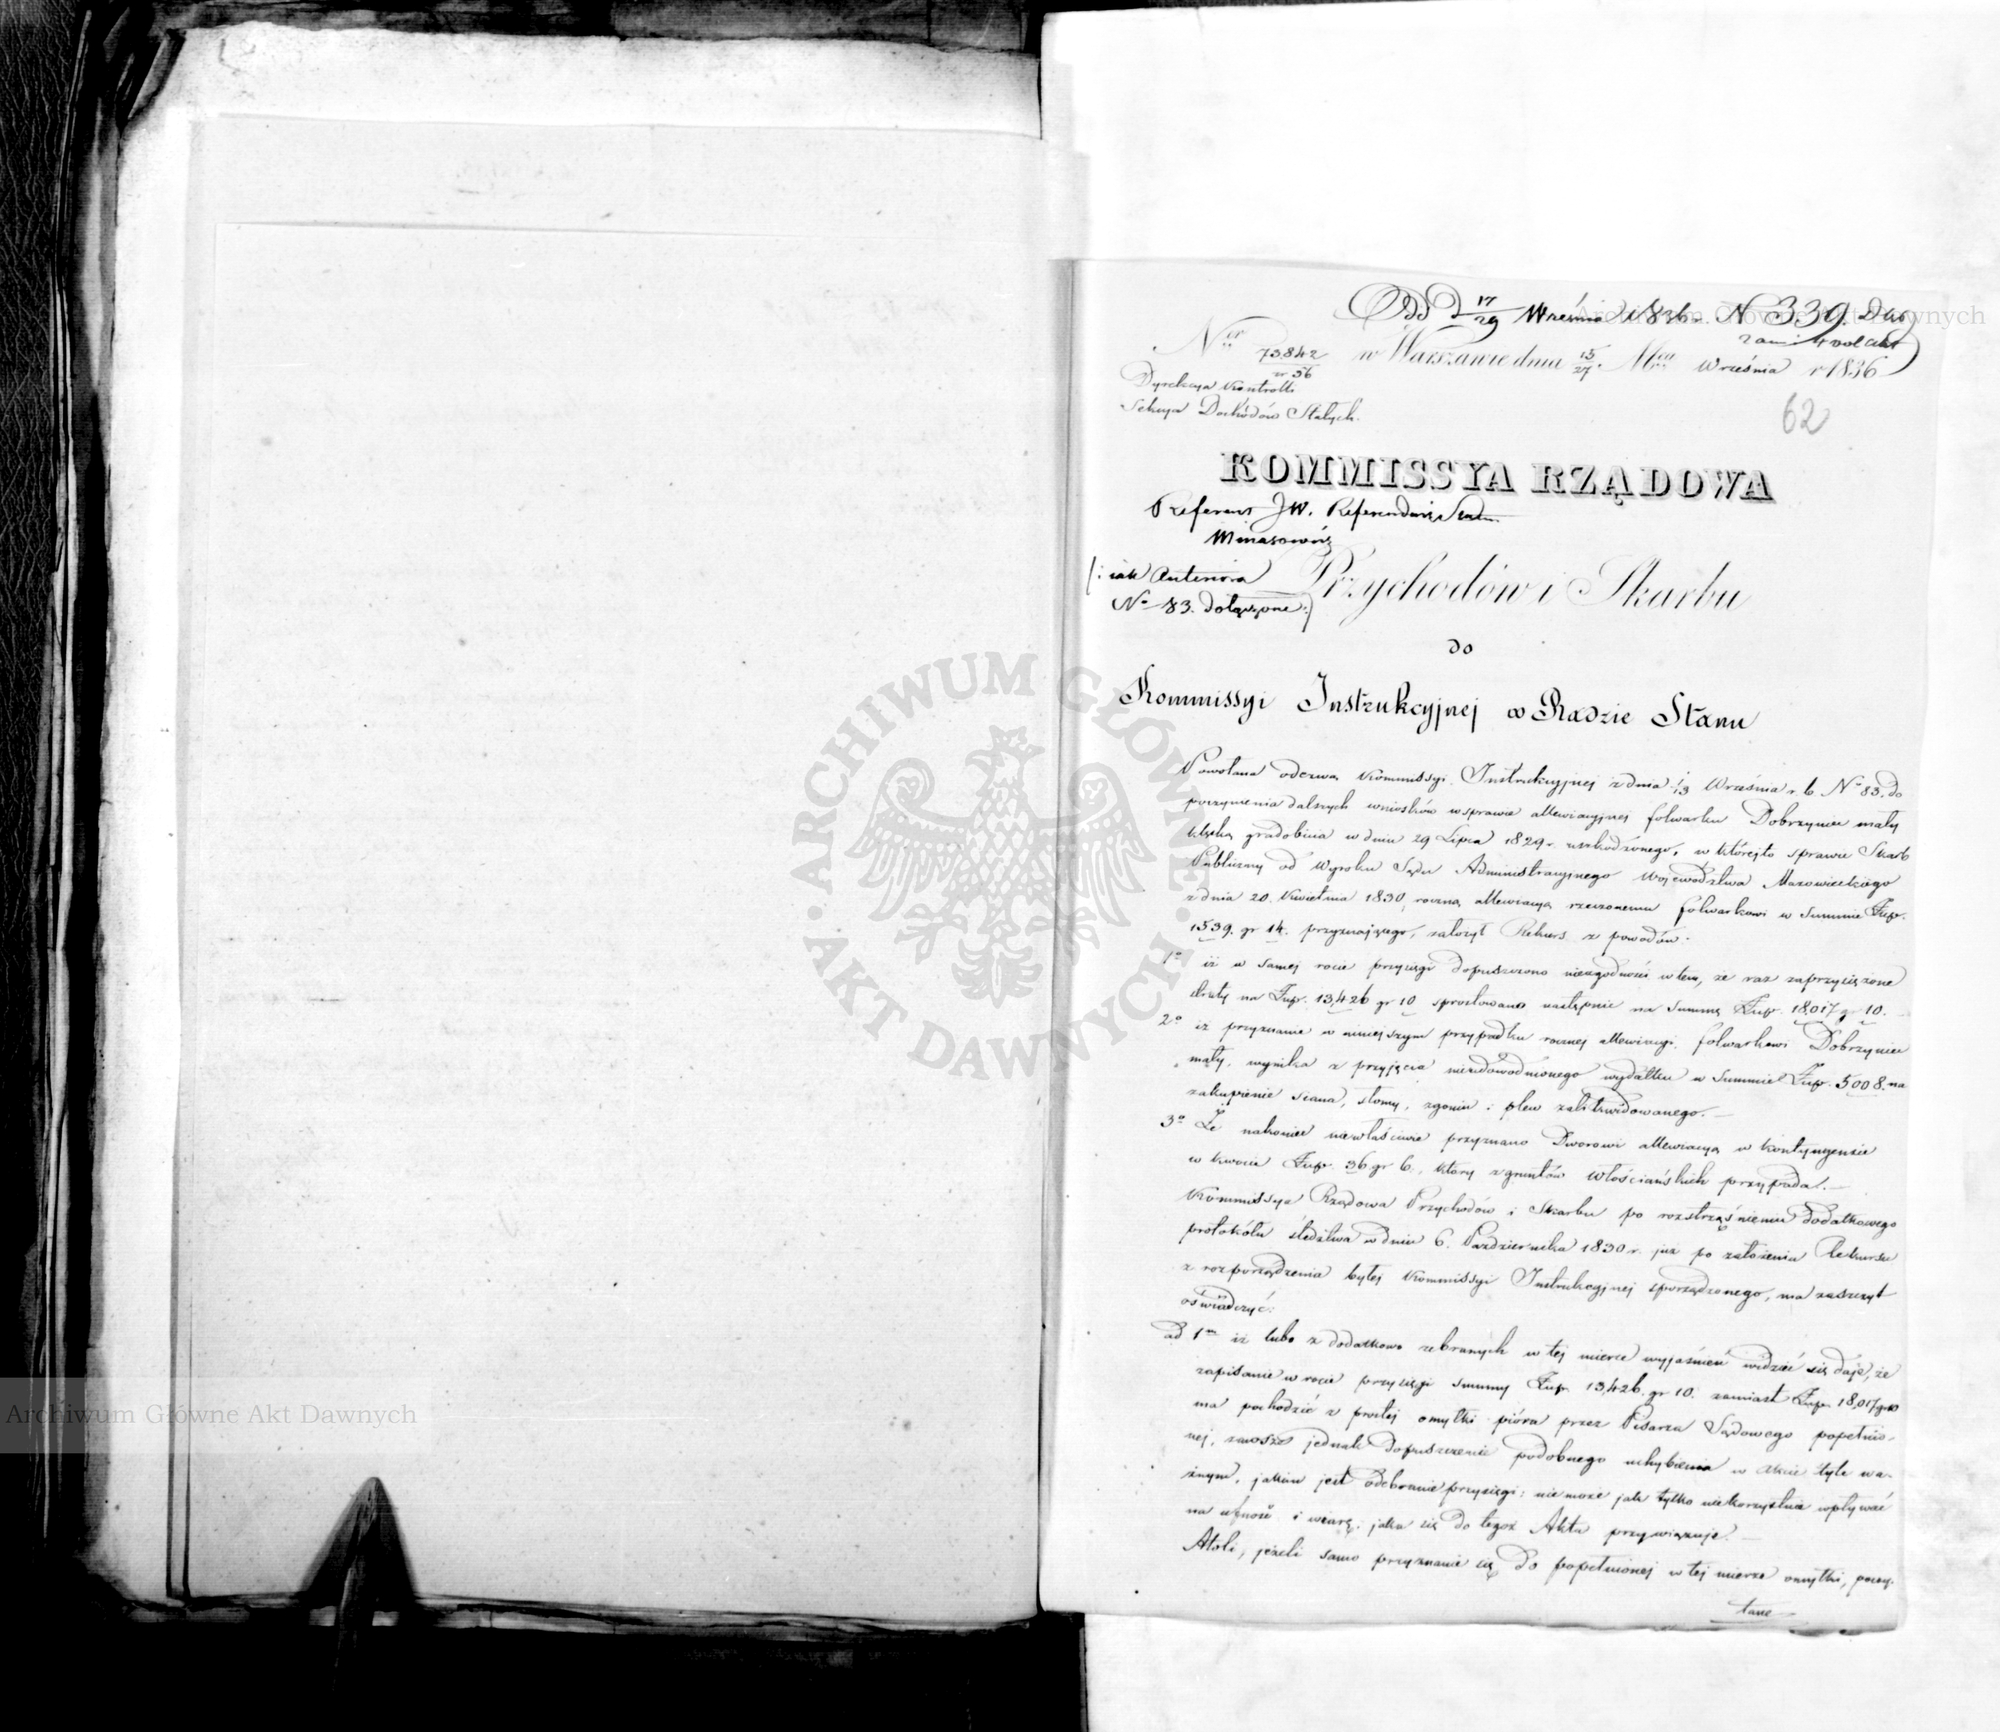 Dd 17/29 Września 1836. N 339. Dzo
Nro 73842/ w Warszawie dnia 15/27. Mca Września r 1836
Dyrekcya Kontrolli
Sekcya Dochodów Stałych.
62
KOMMISSYA RZĄDOWA
Referent JW. Referendarz Stanu
Minasowicz
(: iak Anteriora
No 83. dołączone :)
Przychodów i Skarbu
do
Kommissyi Instrukcyjnej w Radzie Stanu
Powołana odezwą Kommissyi Instrukcyjnej z dnia 1/13 Września r. b. No 83. do
poczynienia dalszych wniosków w sprawie allewiacyjnej folwarku Dobrzyniec mały
klęską gradobicia w dniu 29 Lipca 1829 r. uszkodzonego, w którejto sprawie Skarb
Publiczny od Wyroku Sądu Administracyjnego Województwa Mazowieckiego
z dnia 20. Kwietnia 1830, roczną allewiacyą rzeczonemu folwarkowi w Summie Złp.
1539. gr 14. przyznającego, założył Rekurs z powodów.
1o iż w samej rocie przysięgi dopuszczono niezgodności w tem, że raz zaprzysiężone
straty na Złp. 13,426 gr 10 sprostowano następnie na summę Złp. 18,017 gr 10.
2o iż przyznanie w niniejszym przypadku rocznej allewiacyi folwarkowi Dobrzyniec
mały, wynika z przyjęcia nieudowodnionego wydatku w Summie Złp. 5008. na
zakupienie siana, słomy, zgonin i plew zalikwidowanego. —
3o Że nakoniec niewłaściwie przyznano Dworowi allewiacyą w kontyngensie
w kwocie Złp. 36 gr 6., który z gruntów włościańskich przypada. —
Kommissya Rządowa Przychodów i Skarbu po roztrząśnieniu dodatkowego
protokółu śledztwa w dniu 6. Października 1830 r. już po założeniu Rekursu
z rozporządzenia byłej Kommissyi Instrukcyjnej sporządzonego, ma zaszczyt
oświadczyć:
ad 1m iż lubo z dodatkowo zebranych w tej mierze wyjaśnień widzieć się daje, że
zapisanie w rocie przysięgi summy Złp. 13,426. gr 10. zamiast Złp. 18,017 gr 10
ma pochodzić z prostej omyłki pióra przez Pisarza Sądowego popełnio-
nej, zawsze jednak dopuszczenie podobnego uchybienia w akcie tyle wa-
żnym, jakim jest odebranie przysięgi; nie może jak tylko niekorzystnie wpływać
na ufność i wiarę, jaka się do tegoż Aktu przywiązuje. —
Atoli, jeżeli samo przyznanie się do popełnionej w tej mierze omyłki, poczy-
tane
Archiwum Główne Akt Dawnych
Archiwum Główne Akt Dawnych
ARCHIWUM GŁÓWNE · AKT DAWNYCH ·